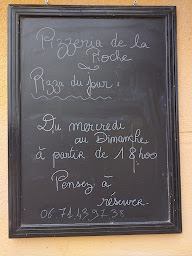 Pizzeria de la
Roche
Pizza du jour :
Du mercredi
au Dimanche
à partir de 18h00
Pensez à
réserver
06.71.43.97.38